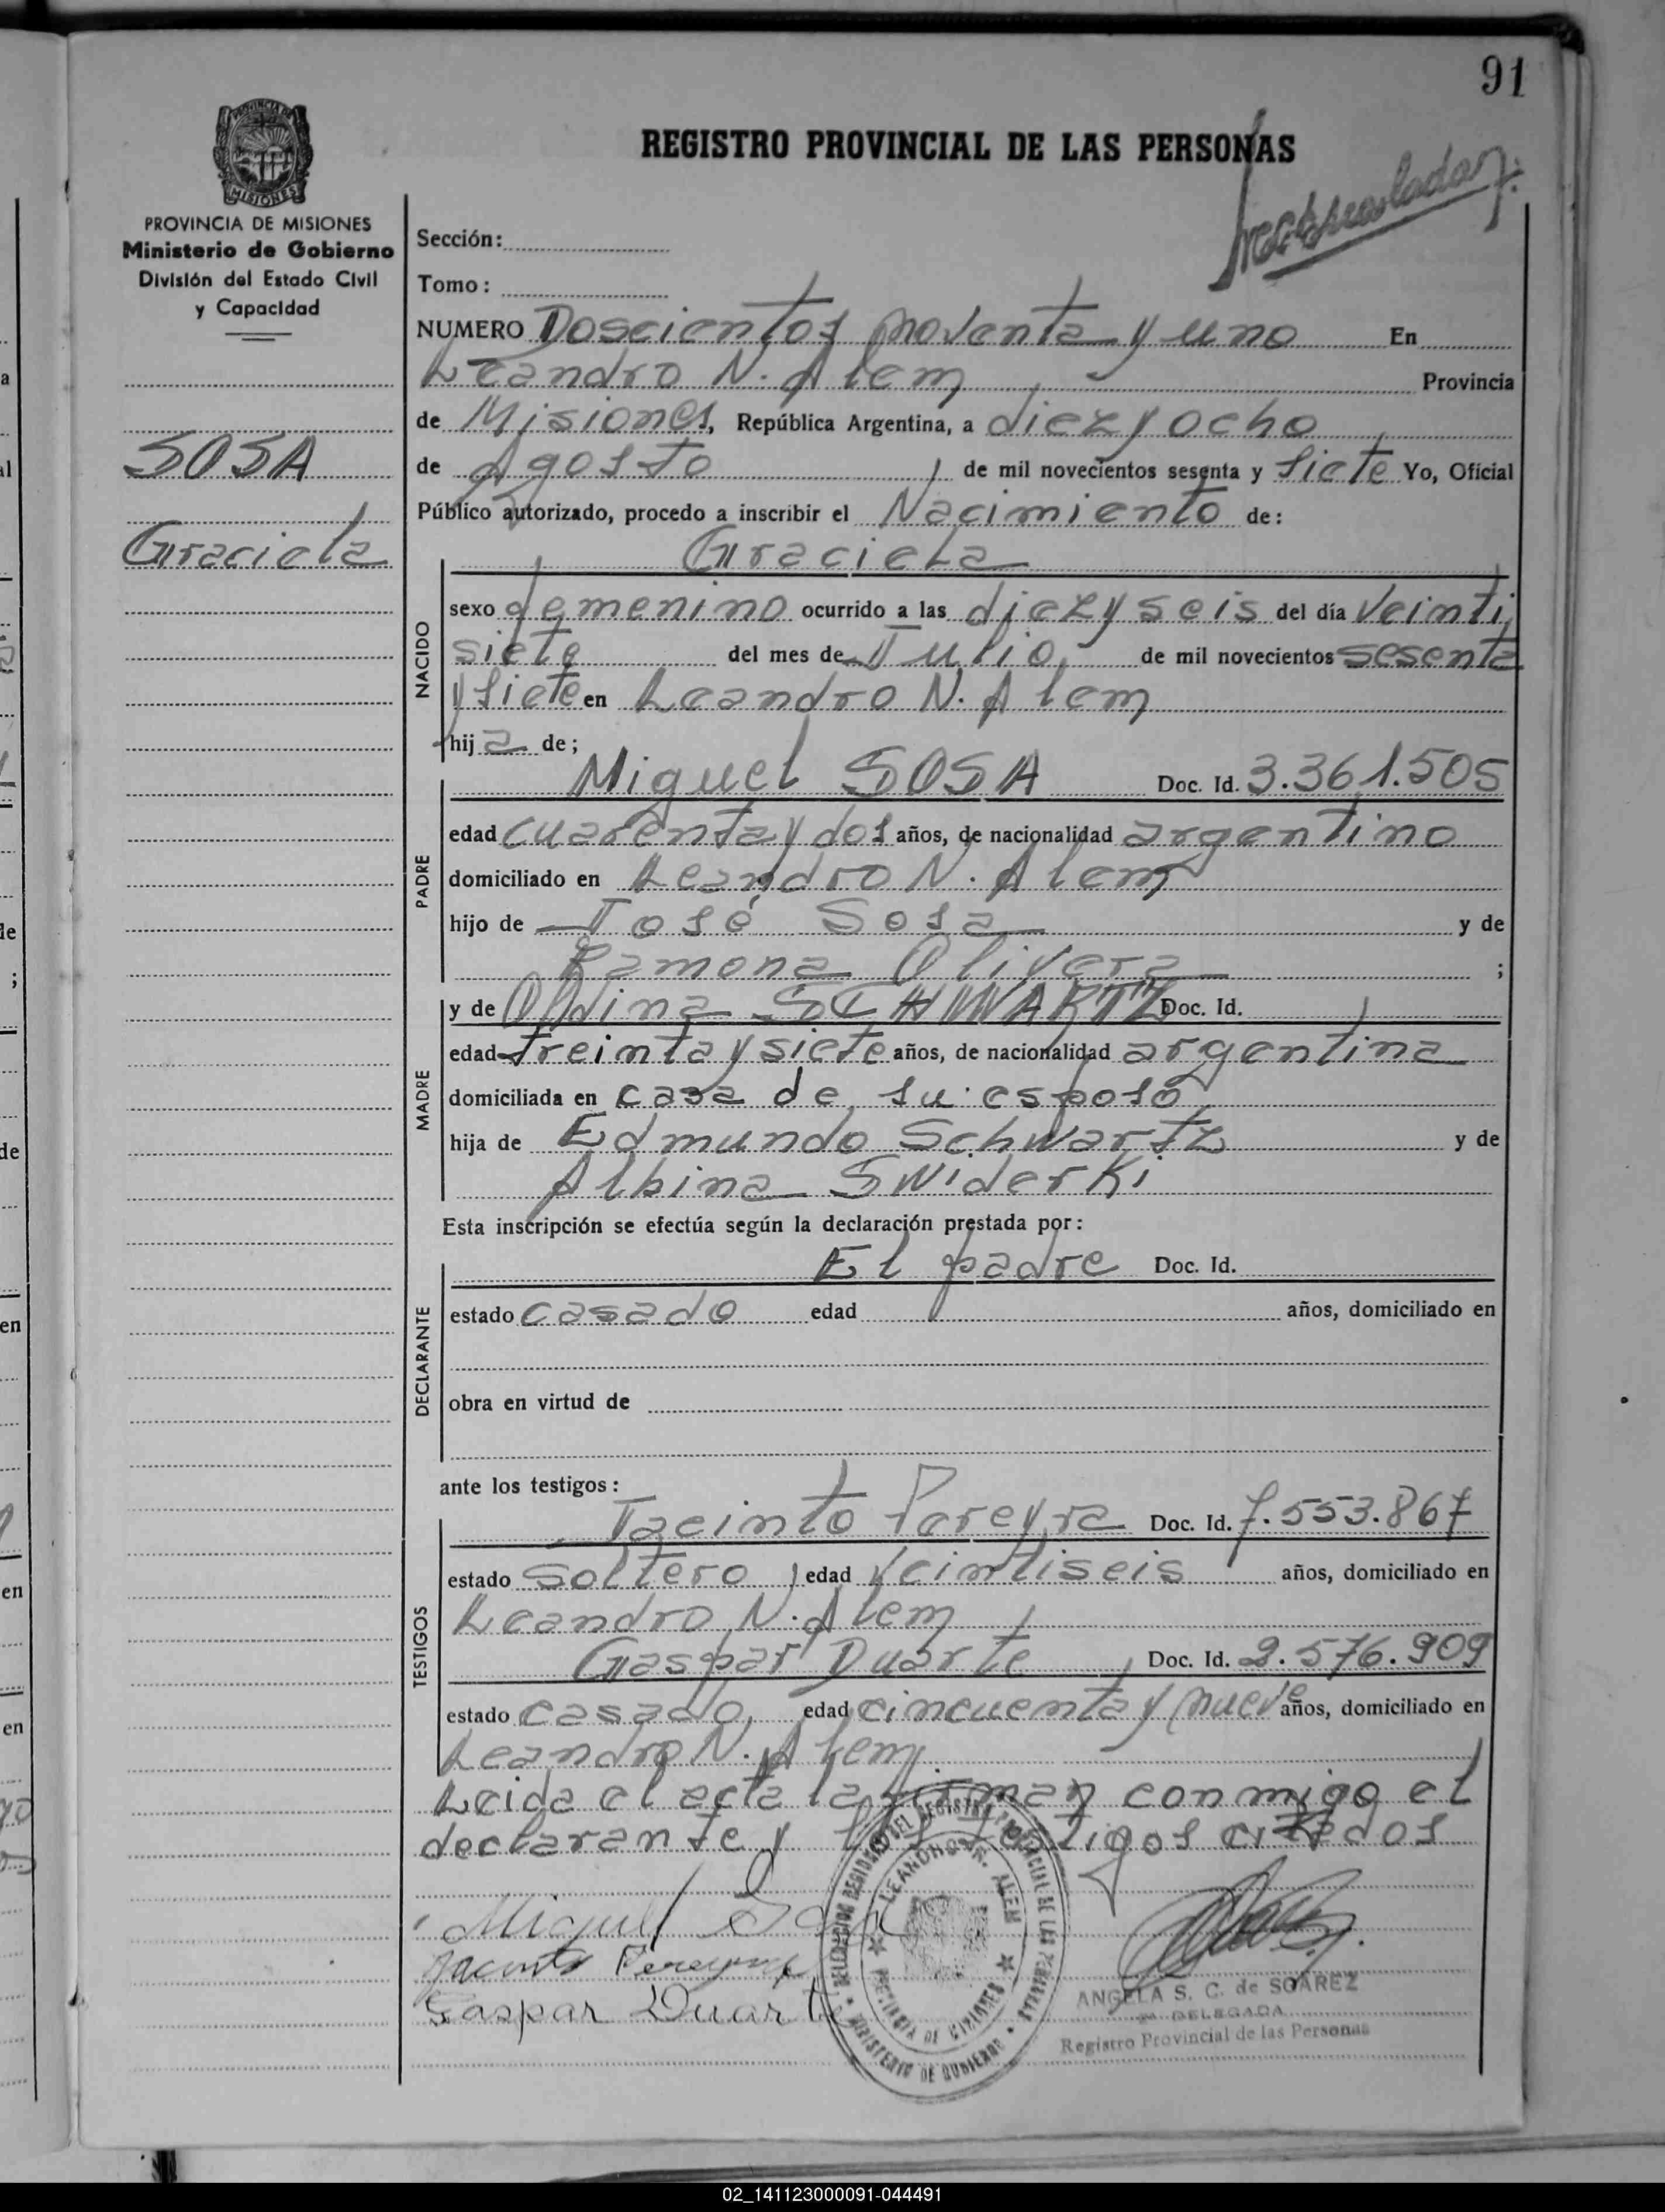 91
PROVINCIA DE
MISIONES
REGISTRO PROVINCIAL DE LAS PERSONAS
PROVINCIA DE MISIONES
Ministerio de Gobierno
División del Estado Civil
y Capacidad
SOSA
Graciela
Sección:
Tomo:
NUMERO Doscientos noventa y uno En
Leandro N. Alem Provincia
de Misiones, República Argentina, a diez y ocho
de Agosto de mil novecientos sesenta y siete Yo, Oficial
Público autorizado, procedo a inscribir el Nacimiento de:
Graciela
NACIDO
sexo femenino ocurrido a las diez y seis del día veinti
siete del mes de Julio de mil novecientos sesenta
y siete en Leandro N. Alem
hij a de;
Miguel SOSA Doc. Id. 3.361.505
PADRE
edad cuarenta y dos años, de nacionalidad argentino
domiciliado en Leandro N. Alem
hijo de José Sosa y de
Ramona Olivera ;
y de SCHWARTZ Doc. Id.
MADRE
edad treinta y siete años, de nacionalidad argentina
domiciliada en casa de su esposo
hija de Edmundo Schwartz y de
Albina Swiderki
Esta inscripción se efectúa según la declaración prestada por:
El padre Doc. Id.
DECLARANTE
estado casado edad años, domiciliado en
obra en virtud de
ante los testigos:
Jacinto Pereyra Doc. Id. 7.553.867
TESTIGOS
estado soltero, edad veintiseis años, domiciliado en
Leandro N. Alem
Gaspar Duarte, Doc. Id. 2.576.909
estado casado, edad cincuenta y nueve años, domiciliado en
Leandro N. Alem.
Leida el acta la firman conmigo el
declarante y los testigos citados
Miguel Sosa
Jacinto Pereyra
Gaspar Duarte
LEANDRO N. ALEM
PROVINCIA DE MISIONES
MINISTERIO DE GOBIERNO
ANGELA S. C. de SOAREZ
DELEGADA
Registro Provincial de las Personas
02_141123000091-044491